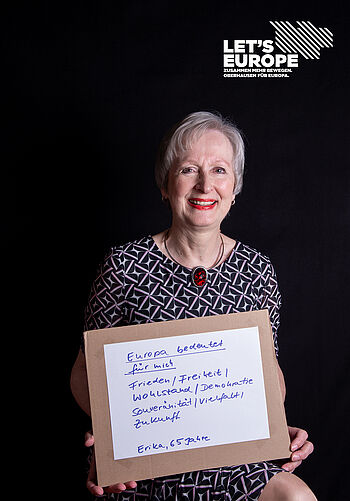 LET'S
EUROPE
ZUSAMMEN MEHR BEWEGEN.
OBERHAUSEN FÜR EUROPA.
Europa bedeutet
für mich
Frieden/Freiheit/
Wohlstand/Demokratie
Souveränität/Vielfalt/
Zukunft
Erika, 65 Jahre